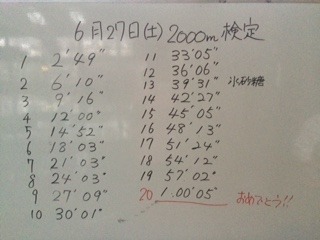 6月27日(土) 2000m 検定
1 2'49"
2 6'10"
3 9'16"
4 12'00"
5 14'52"
6 18'03"
7 21'03"
8 24'03"
9 27'09"
10 30'01"
11 33'05"
12 36'06"
13 39'31" 氷砂糖
14 42'27"
15 45'05"
16 48'13"
17 51'24"
18 54'12"
19 57'02"
20 1.00'05" おめでとう!!